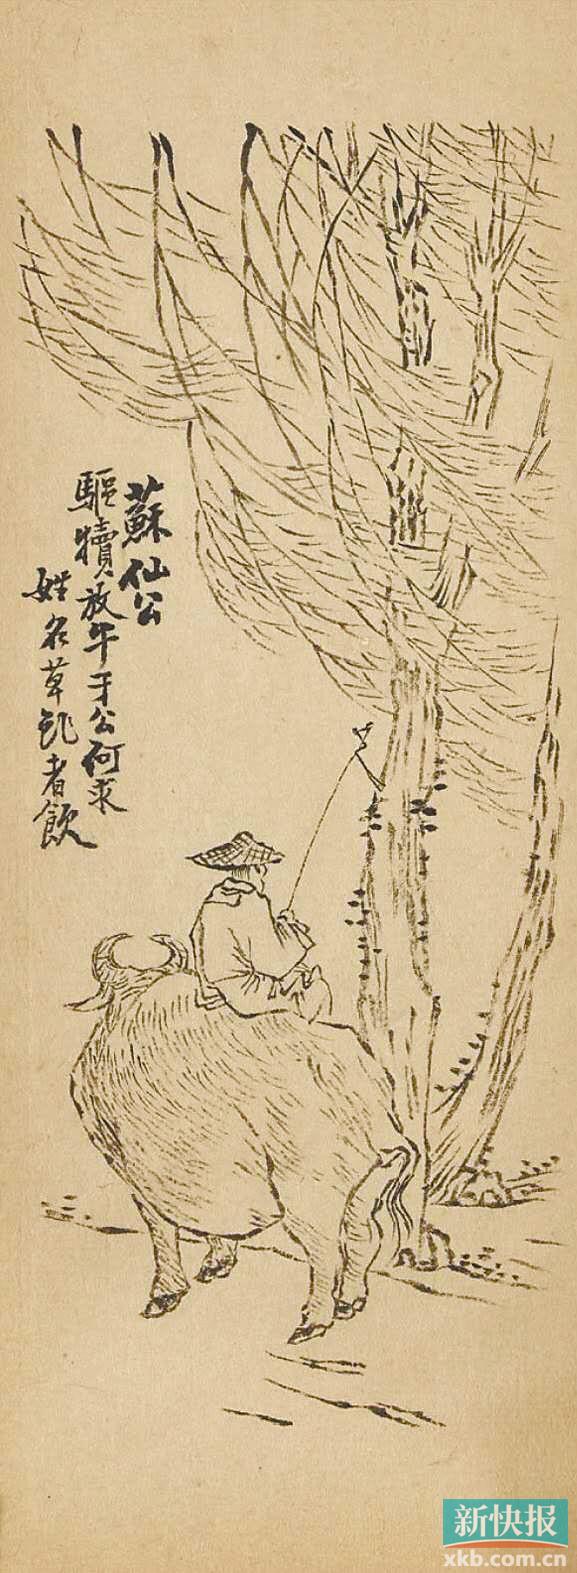 蘇仙公
驅犢放牛于公何求
姓名草者飲
新快报
xkb.com.cn